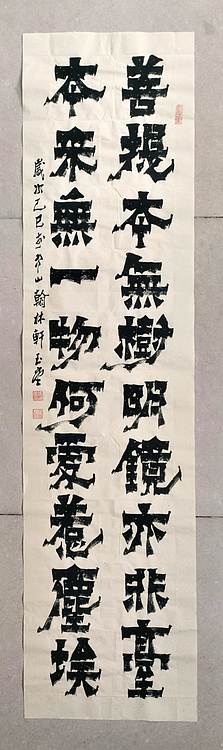 善提本無樹明鏡亦非臺
本来無一物何處惹塵埃
歲次乙巳 山翰林軒玉堂